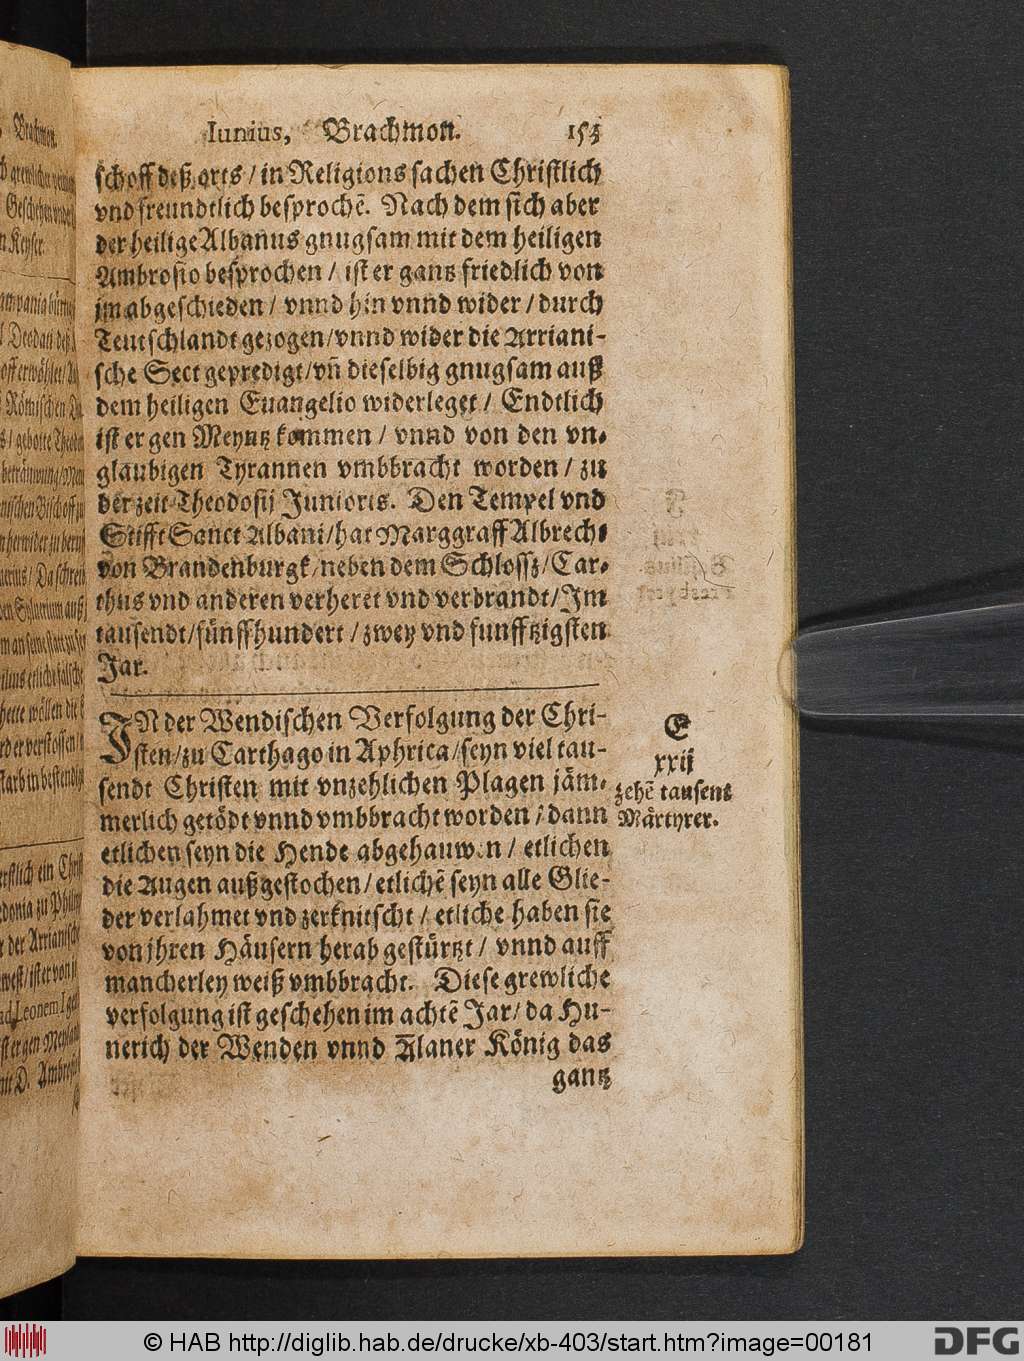 Iunius, Brachmon. 153
schoff deß orts / in Religions sachen Christlich
vnd freundtlich besprochẽ. Nach dem sich aber
der heilige Albanus gnugsam mit dem heiligen
Ambrosio besprochen / ist er gantz friedlich von
jm abgeschieden / vnnd hin vnnd wider / durch
Teutschlandt gezogen / vnnd wider die Arriani-
sche Sect gepredigt / vñ dieselbig gnugsam auß
dem heiligen Euangelio widerleget / Endtlich
ist er gen Meyntz kommen / vnnd von den vn-
glaubigen Tyrannen vmbbracht worden / zu
der zeit Theodosij Junioris. Den Tempel vnd
Stifft Sanct Albani / hat Marggraff Albrecht
von Brandenburgk / neben dem Schlossz / Car-
thus vnd anderen verheret vnd verbrandt / Im
tausendt / fünffhundert / zwey vnd funfftzigsten
Jar.
IN der Wendischen Verfolgung der Chri-
sten / zu Carthago in Aphrica / seyn viel tau-
sendt Christen mit vnzehlichen Plagen jäm-
merlich getödt vnnd vmbbracht worden / dann
etlichen seyn die Hende abgehauwen / etlichen
die Augen außgestochen / etlichẽ seyn alle Glie-
der verlahmet vnd zerknitscht / etliche haben sie
von jhren Häusern herab gestürtzt / vnnd auff
mancherley weiß vmbbracht. Diese grewliche
verfolgung ist geschehen im achtẽ Jar / da Hu-
nerich der Wenden vnnd Alaner König das
gantz
E
xxij
zehẽ tausent
Märtyrer.
© HAB http://diglib.hab.de/drucke/xb-403/start.htm?image=00181
DFG